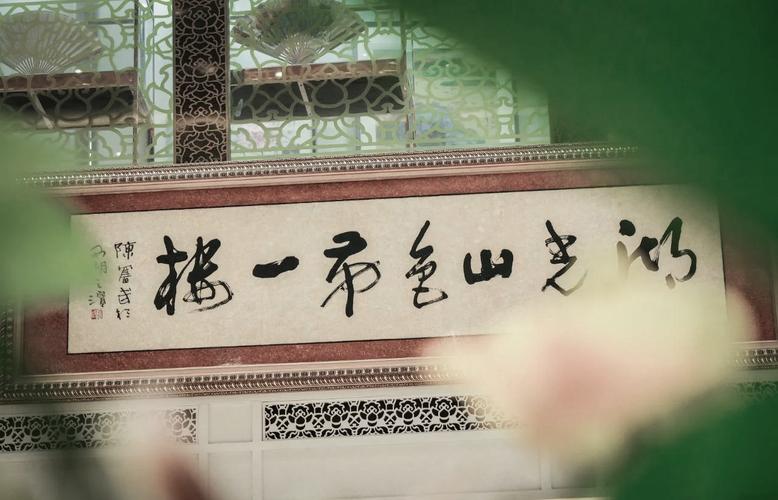 湖光山色第一楼
陳審武於
西湖之濱